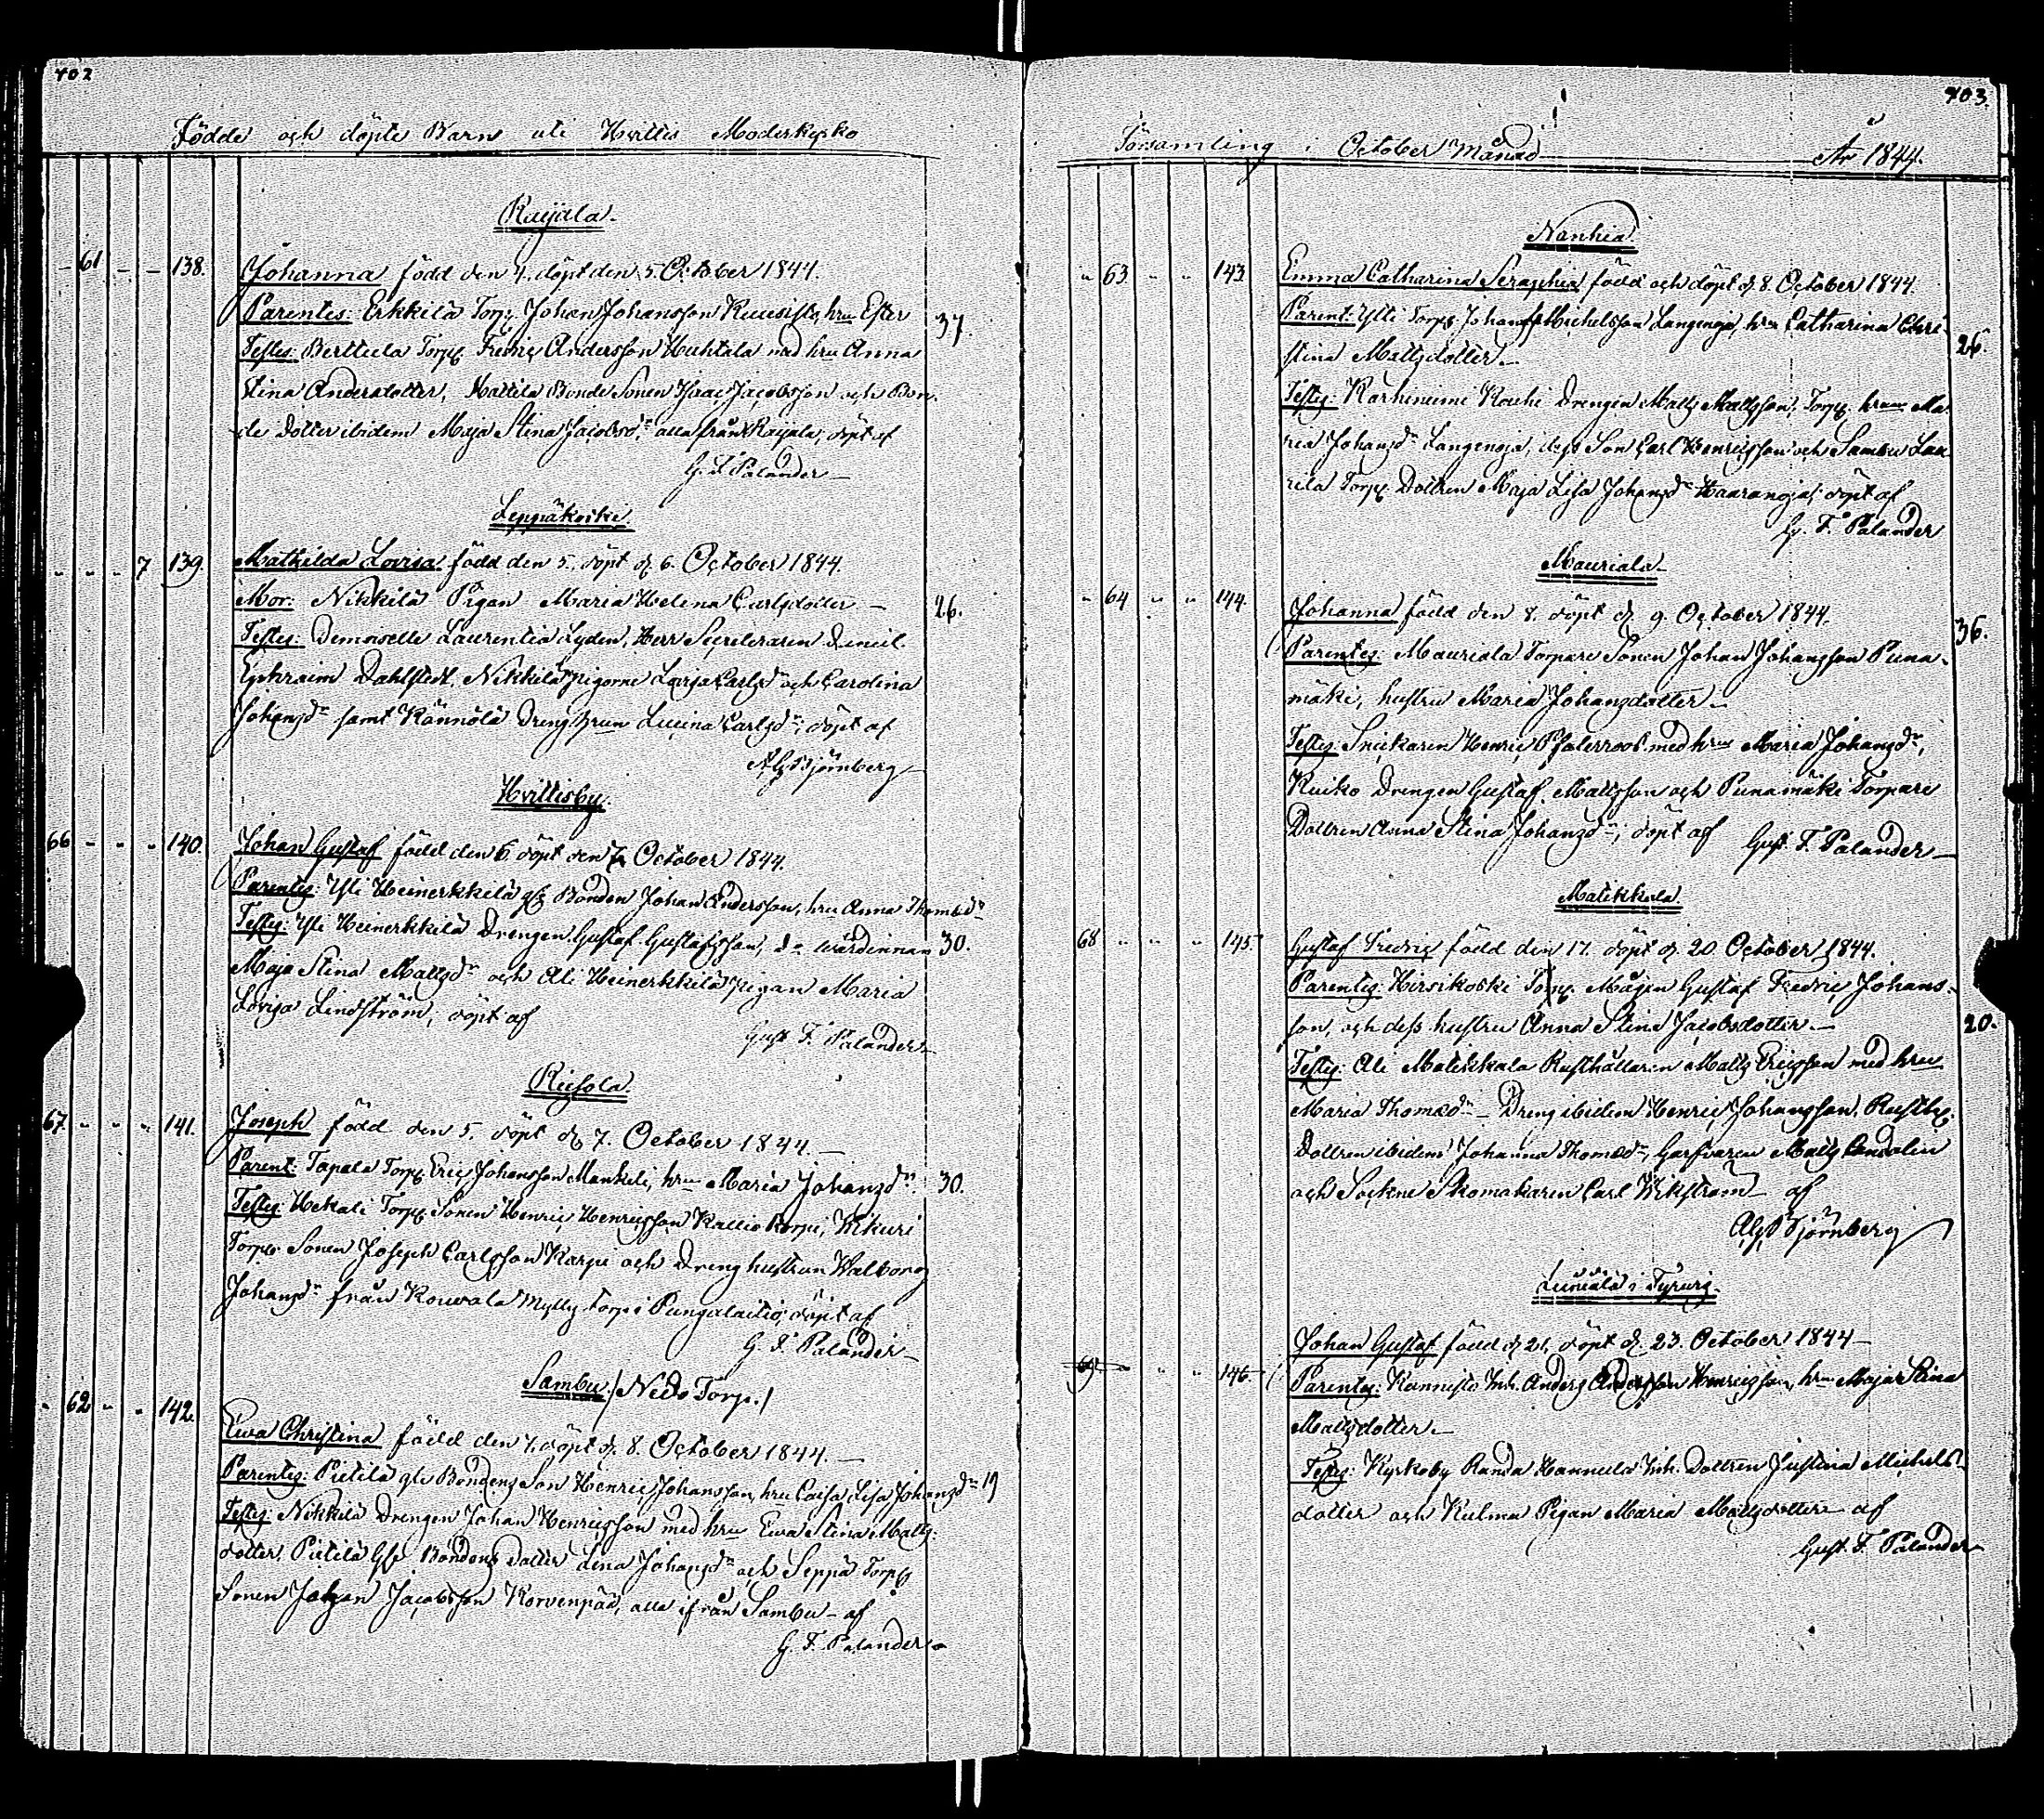 402
Födde och döpte Barn uti Hvittis Moderkyrko
Raijala.
- 61 - - 138. Johanna född den 4. döpt den 5. October 1844.
Parentes: Erkkilä Torp. Johan Johansson Kuusisto, hru Ester 37.
Testes: Berttula Torp. Fredric Andersson Huhtala med hru Anna
Stina Andersdotter, Hattila Bonde Sonen Isaac Jacobsson och Bon-
de Dotter ibidem Maja Stina Jacobsdr, alla från Raijala, döpt af
G. F. Palander
Leppäkoski.
- - - 7 139. Mathilda Lovisa född den 5. döpt d. 6. October 1844.
Mor: Nikkilä Pigan Maria Helena Carlsdotter - 26.
Testes: Demoiselle Laurentia Lyden, Herr Secreteraren Daniel
Ephraim Dahlstedt, Nikkilä pigorne Lovisa Carlsdr och Carolina
Johansdr samt Kännölä Dreng hrun Lucina Carlsdr; döpt af
Alf Björnberg
Hvittisby.
66 - - - 140. Johan Gustaf född den 6. döpt den 7. October 1844.
Parentes: Yli Heinerkkilä gle Bonden Johan Andersson, hru Anna Thomædr
Testes: Yli Heinerkkilä Drengen Gustaf Gustafsson, do wärdinnan 30.
Maja Stina Mattsdr och Ali Heinerkkilä pigan Maria
Lovisa Lindström; döpt af
Gust. F. Palander
Riesola.
67. - - - 141. Joseph född den 5. döpt d. 7. October 1844.
Parent: Tapala Torp. Eric Johansson Mankeli, hru Maria Johansdr. 30.
Testes: Hekali Torp. Sonen Henric Henricsson Kallio Korpi, Wikuri
Torp. Sonen Joseph Carlsson Karpi och Dreng hustrun Walborg
Johansdr från Kouvola Mylly torp i Pungalaitio; döpt af
G. F. Palander
Sambu /Neds Torp./
- 62 - - 142. Ewa Christina född den 7. döpt d. 8. October 1844.
Parentes: Pietilä gle Bondens Son Henric Johansson, hru Caisa Lisa Johansdr 19
Testes: Nikkilä Drengen Johan Henricsson med hru Ewa Stina Matts-
dotter, Pietilä gle Bondens Dotter Lena Johansdr och Seppä Torp.
Sonen Johan Jacobsson Korvenpää, alla ifrån Sambu - af
G. F. Palander
403.
Församling i October Månad År 1844.
Nanhia
- 63 - - 143. Emma Catharina Seraphia född och döpt d. 8. October 1844.
Parent: Ylli Torp. Johan Michelsson Langenoja, hru Catharina Chri-
stina Mattsdotter. 26.
Testes: Karhiniemi Kouhi Drengen Matts Mattsson, Torp. hrun Ma-
ria Johansdr Langenoja, dess Son Carl Henricsson och Sambu Lau-
rila Torp. Dottren Maja Lisa Johansdr Haaranoja; döpt af
G. F. Palander
Mauriala
- 64 - - 144. Johanna född den 8. döpt d. 9. October 1844.
Parentes: Mauriala Torpare Sonen Johan Johansson Puna- 36.
mäki, hustru Maria Johansdotter
Testes: Snickaren Henric Palerroos med hru Maria Johansdr,
Kuiko Drengen Gustaf Mattsson och Punamäki Torpare
Dottren Anna Stina Johansdr; döpt af Gust. F. Palander
Matikkala.
68 - - - 145. Gustaf Fredric född den 17. döpt d. 20. October 1844.
Parentes: Hirsikoski Torp. Mågen Gustaf Fredric Johans-
son, och dess hustru Anna Stina Jacobsdotter. 20.
Testes: Ali Matikkala Rusthållaren Matts Ericsson med hru
Maria Thomædr - Dreng ibidem Henric Johansson, Rusth.
Dottren ibidem Johanna Thomædr, Garfvaren Matts Candolin
och Sockne Skomakaren Carl Wikström af
Alf Björnberg
Luusala i Tyrwis.
69 - - - 146. Johan Gustaf född d. 21. döpt d. 23. October 1844
Parentes: Kannisto Inh. Anders Henricsson, hru Maja Stina
Mattsdotter.
Testes: Kyrkoby Randa Hannula Inh. Dottren Justina Michels-
dotter och Kulma Pigan Maria Mattsdotter af
Gust. F. Palander